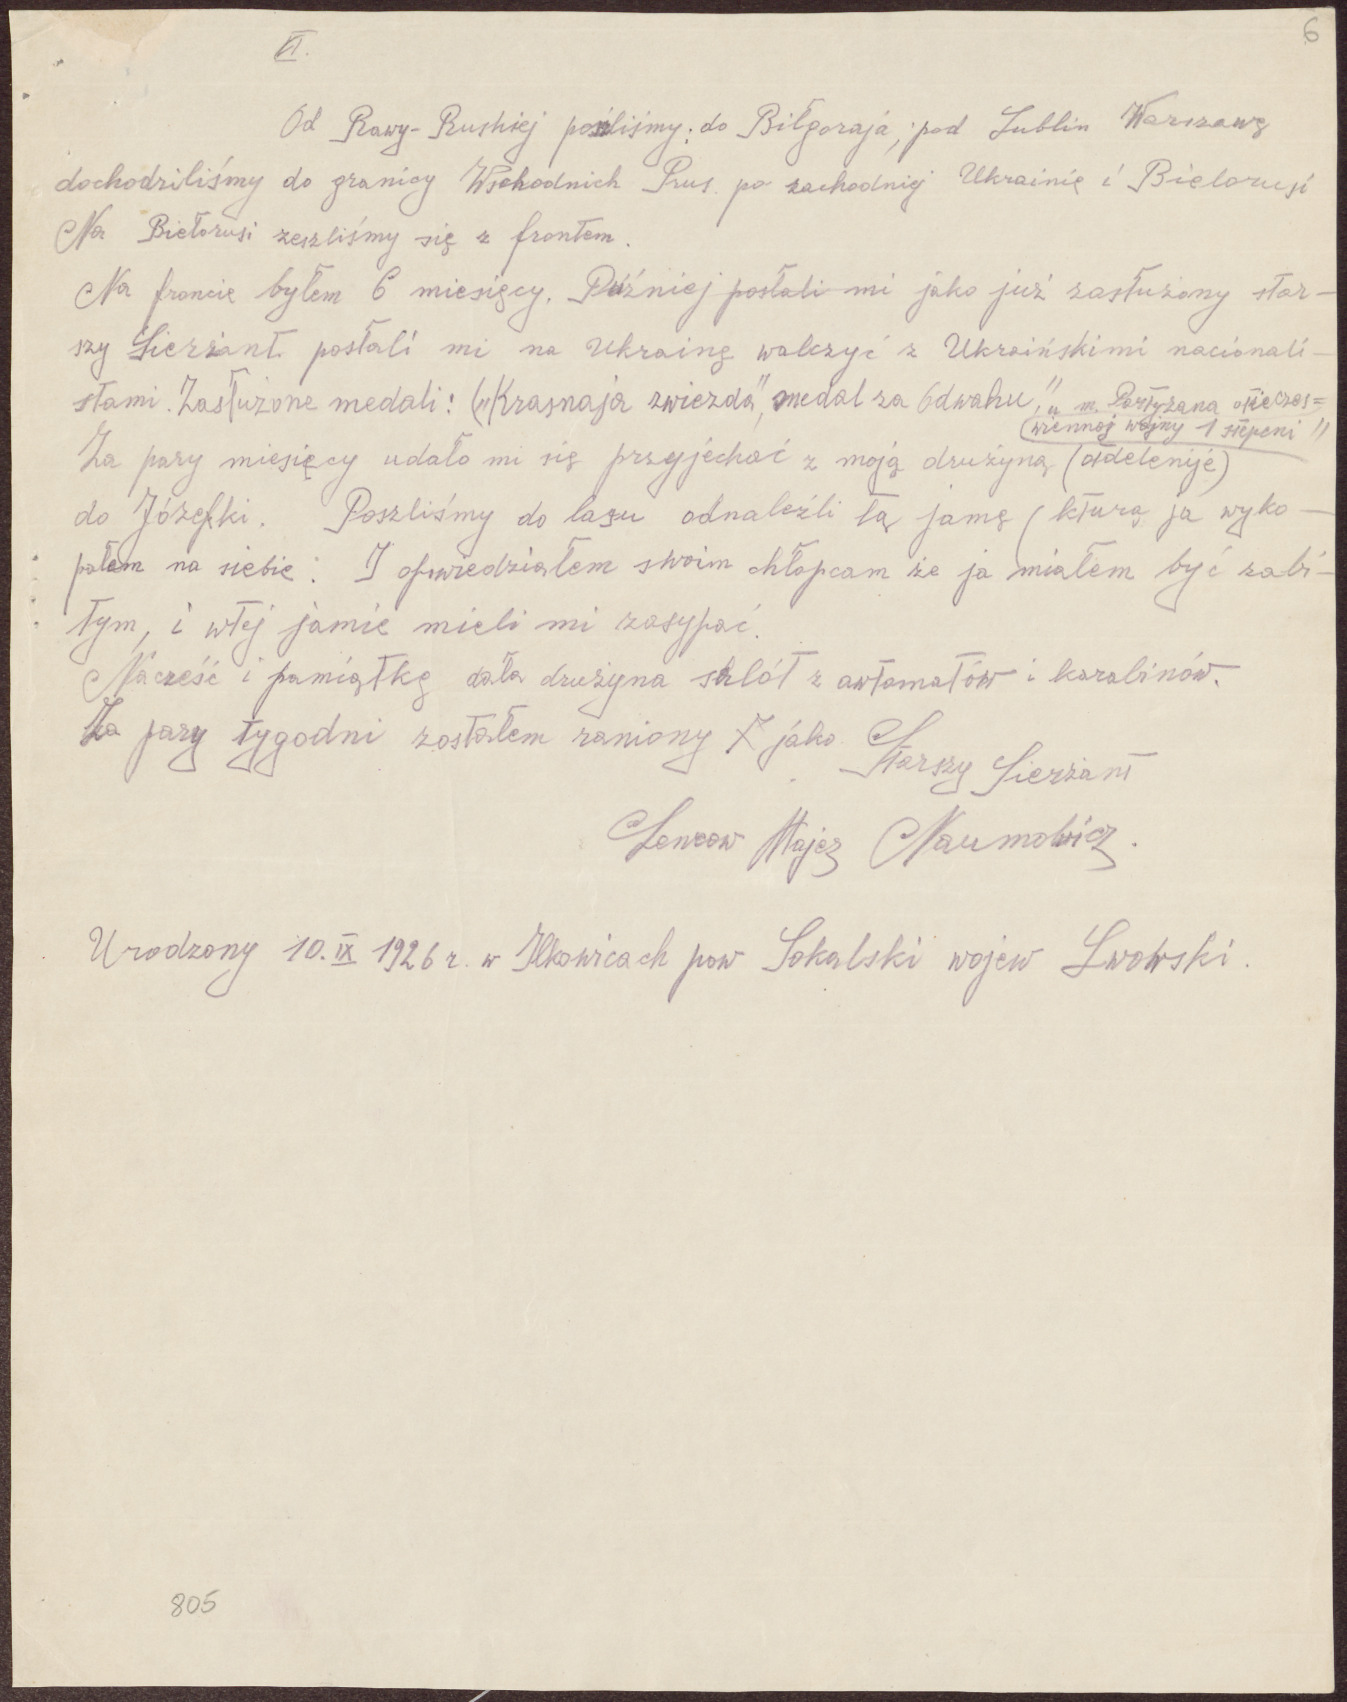 6
VI.
Od Rawy-Ruskiej poszliśmy: do Biłgoraja, pod Lublin Warszawę
dochodziliśmy do granicy Wschodnich Prus. po zachodniej Ukrainię i Bielorusi
Na Biełorusi zeszliśmy się z frontem.
Na froncie byłem 6 miesięcy. Puźniej posłali mi jako już zasłużony star-
szy Sierżant posłali mi na Ukrainę walczyć z Ukraińskimi nacionali-
stami. Zasłużone medali: („Krasnaja zwiezda", medal za Odwahu," „ m. Partyzana otieczes=
wiennoj wojny 1 stepeni "
Za pary miesięcy udało mi się przyjechać z moją drużyną (otdelenije)
do Józefki. Poszliśmy do lasu odnaleźli tą jamę (kturą ja wyko-
pałem na siebie: I opowiedziałem swoim chłopcam że ja miałem być zabi-
tym, i wtej jamie mieli mi zasypać.
Nacześć i pamiątkę dała drużyna salót z awtomatów i karabinów.
Za pary tygodni zostałem raniony jako Starszy Sierżant
Majez Naumowicz.
Urodzony 10. IX 1926 r. w Ilkowicach pow Sokalski wojew Lwowski.
805